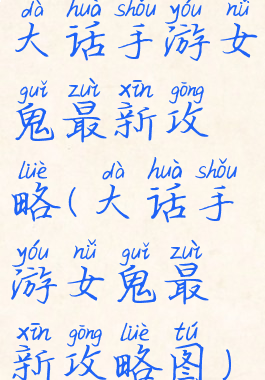 dà huà shǒu yóu nǚ
大话手游女
guǐ zuì xīn gōng
鬼最新攻
lüè dà huà shǒu
略(大话手
yóu nǚ guǐ zuì
游女鬼最
xīn gōng lüè tú
新攻略图)